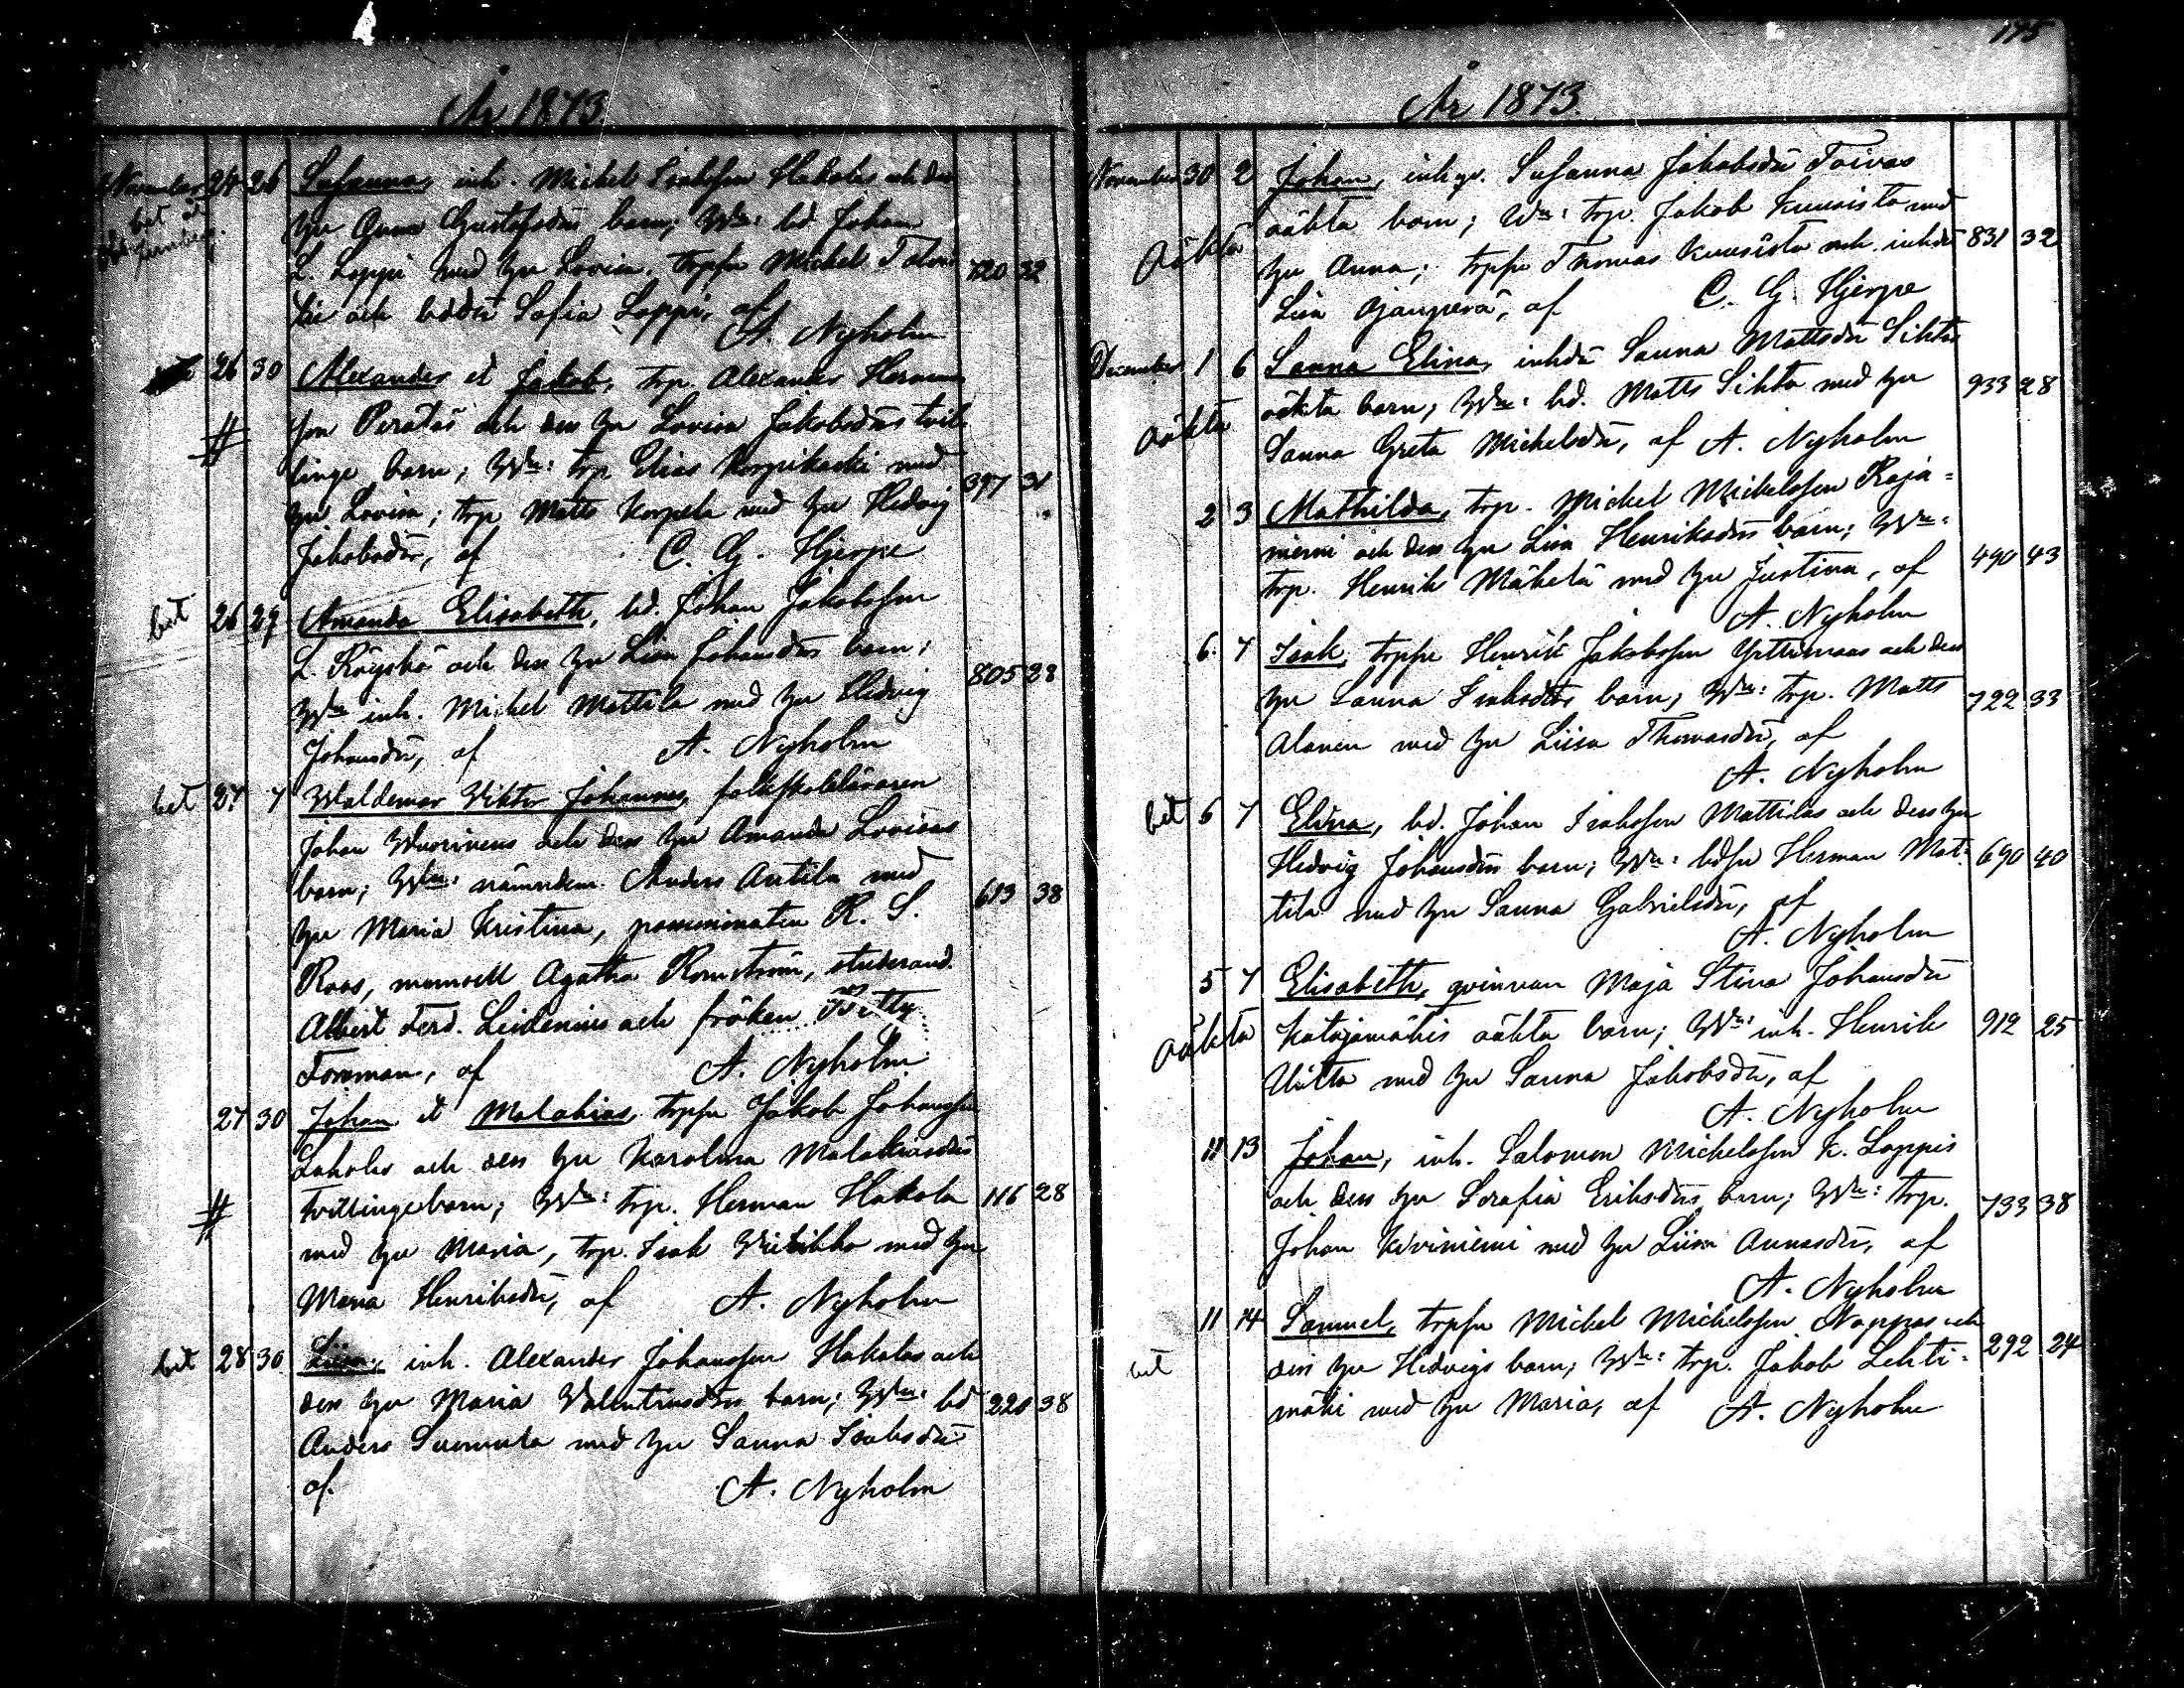 År 1873
November 24 26 Susanna, inh. Michel Isaksson Hakalas och dess
bet
hu Anna Gustafsdrs barn; Wn: bd Johan
L. Loppi med hu Lovisa, trpsn Michel Talvi- 720 32
tie och bddtr Sofia Loppi, af
A. Nyholm
26 30 Alexander et Jakob, trp. Alexander Herman
son Perätäs och dess hu Lovisa Jakobsdrs tvil-
#
linge barn; Wn: trp Elias Korpikoski med
hu Lovisa; trp Matts Korpela med hu Hedvig 397 31
Jakobsdr, af C. G. Hjerpe
bet 26 29 Amanda Elisabeth, bd. Johan Jakobsson
L. Röyskö och dess hu Lisa Johansdrs barn;
Wn inh. Michel Mattila med hu Hedvig 805 28
Johansdr, af A. Nyholm
bet 27 7 Waldemar Viktor Johannes, folkskoleläraren
Johan Wuorinens och dess hu Amanda Lovisas
barn; Wn: nämndem. Anders Antila med
hu Maria Kristina, R. S. 613 38
Roos, mamsell Agatha Romström, studerand.
Albert Ferd. Leidenius och fröken Betty
Forsman, af A. Nyholm
27 30 Johan et Malakias, trpsn Jakob Johansson
Laholas och dess hu Karolina Malakiasdrs
# tvillingebarn; Wn: trp. Herman Hakola 116 28
med hu Maria, trp. Isak Viitikko med hu
Maria Henriksdr, af A. Nyholm
bet 28 30 Liisa, inh. Alexander Johansson Hakalas och
dess hu Maria Valentinsdrs barn; Wn: bd 220 38
Anders Suomula med hu Sanna Isaksdr
af A. Nyholm
175
År 1873.
November 30 2 Johan, inhqv. Susanna Jakobsdr Toivas
oäkta barn; Wn: trp. Jakob Kuusisto med
oäkta hu Anna; trpsn Thomas Kuusisto och inhdr 831 32
Lisa Ojanperä, af C. G. Hjerpe
December 1 6 Sanna Elina, inhdr Sanna Mattsdr Sihtos
oäkta oäkta barn; Wn: bd. Matts Sihto med hu 933 28
Sanna Greta Michelsdr, af A. Nyholm
2 3 Mathilda, trp. Michel Michelsson Raja-
niemi och dess hu Lisa Henriksdrs barn; Wn:
trp. Henrik Mäkelä med hu Justina, af 490 43
A. Nyholm
6 7 Isak, trpsn Henrik Jakobsson Yrttimaas och dess
hu Sanna Isaksdrs barn; Wn: trp. Matts 722 33
Alanen med hu Liisa Thomasdr, af
A. Nyholm
bet 6 7 Elina, bd. Johan Isaksson Mattilas och dess hu
Hedvig Johansdrs barn; Wn: bdsn Herman Mat- 690 40
tila med hu Sanna Gabrielsdr, af
A. Nyholm
5 7 Elisabeth, qvinnan Maja Stina Johansdr
oäkta Katajamäkis oäkta barn; Wn: inh. Henrik 912 25
Uitto med hu Sanna Jakobsdr, af
A. Nyholm
11 13 Johan, inh. Salomon Michelsson K. Loppis
och dess hu Serafia Eriksdrs barn; Wn: trp. 733 38
Johan Kiviniemi med hu Liisa Annasdr, af
A. Nyholm
11 14 Samuel, trpsn Michel Michelsson Noppas och
bet dess hu Hedvigs barn; Wn: trp. Jakob Lehti- 292 24
mäki med hu Maria, af A. Nyholm